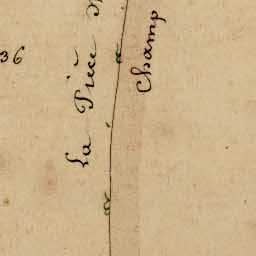 36
La Pièce
Champ